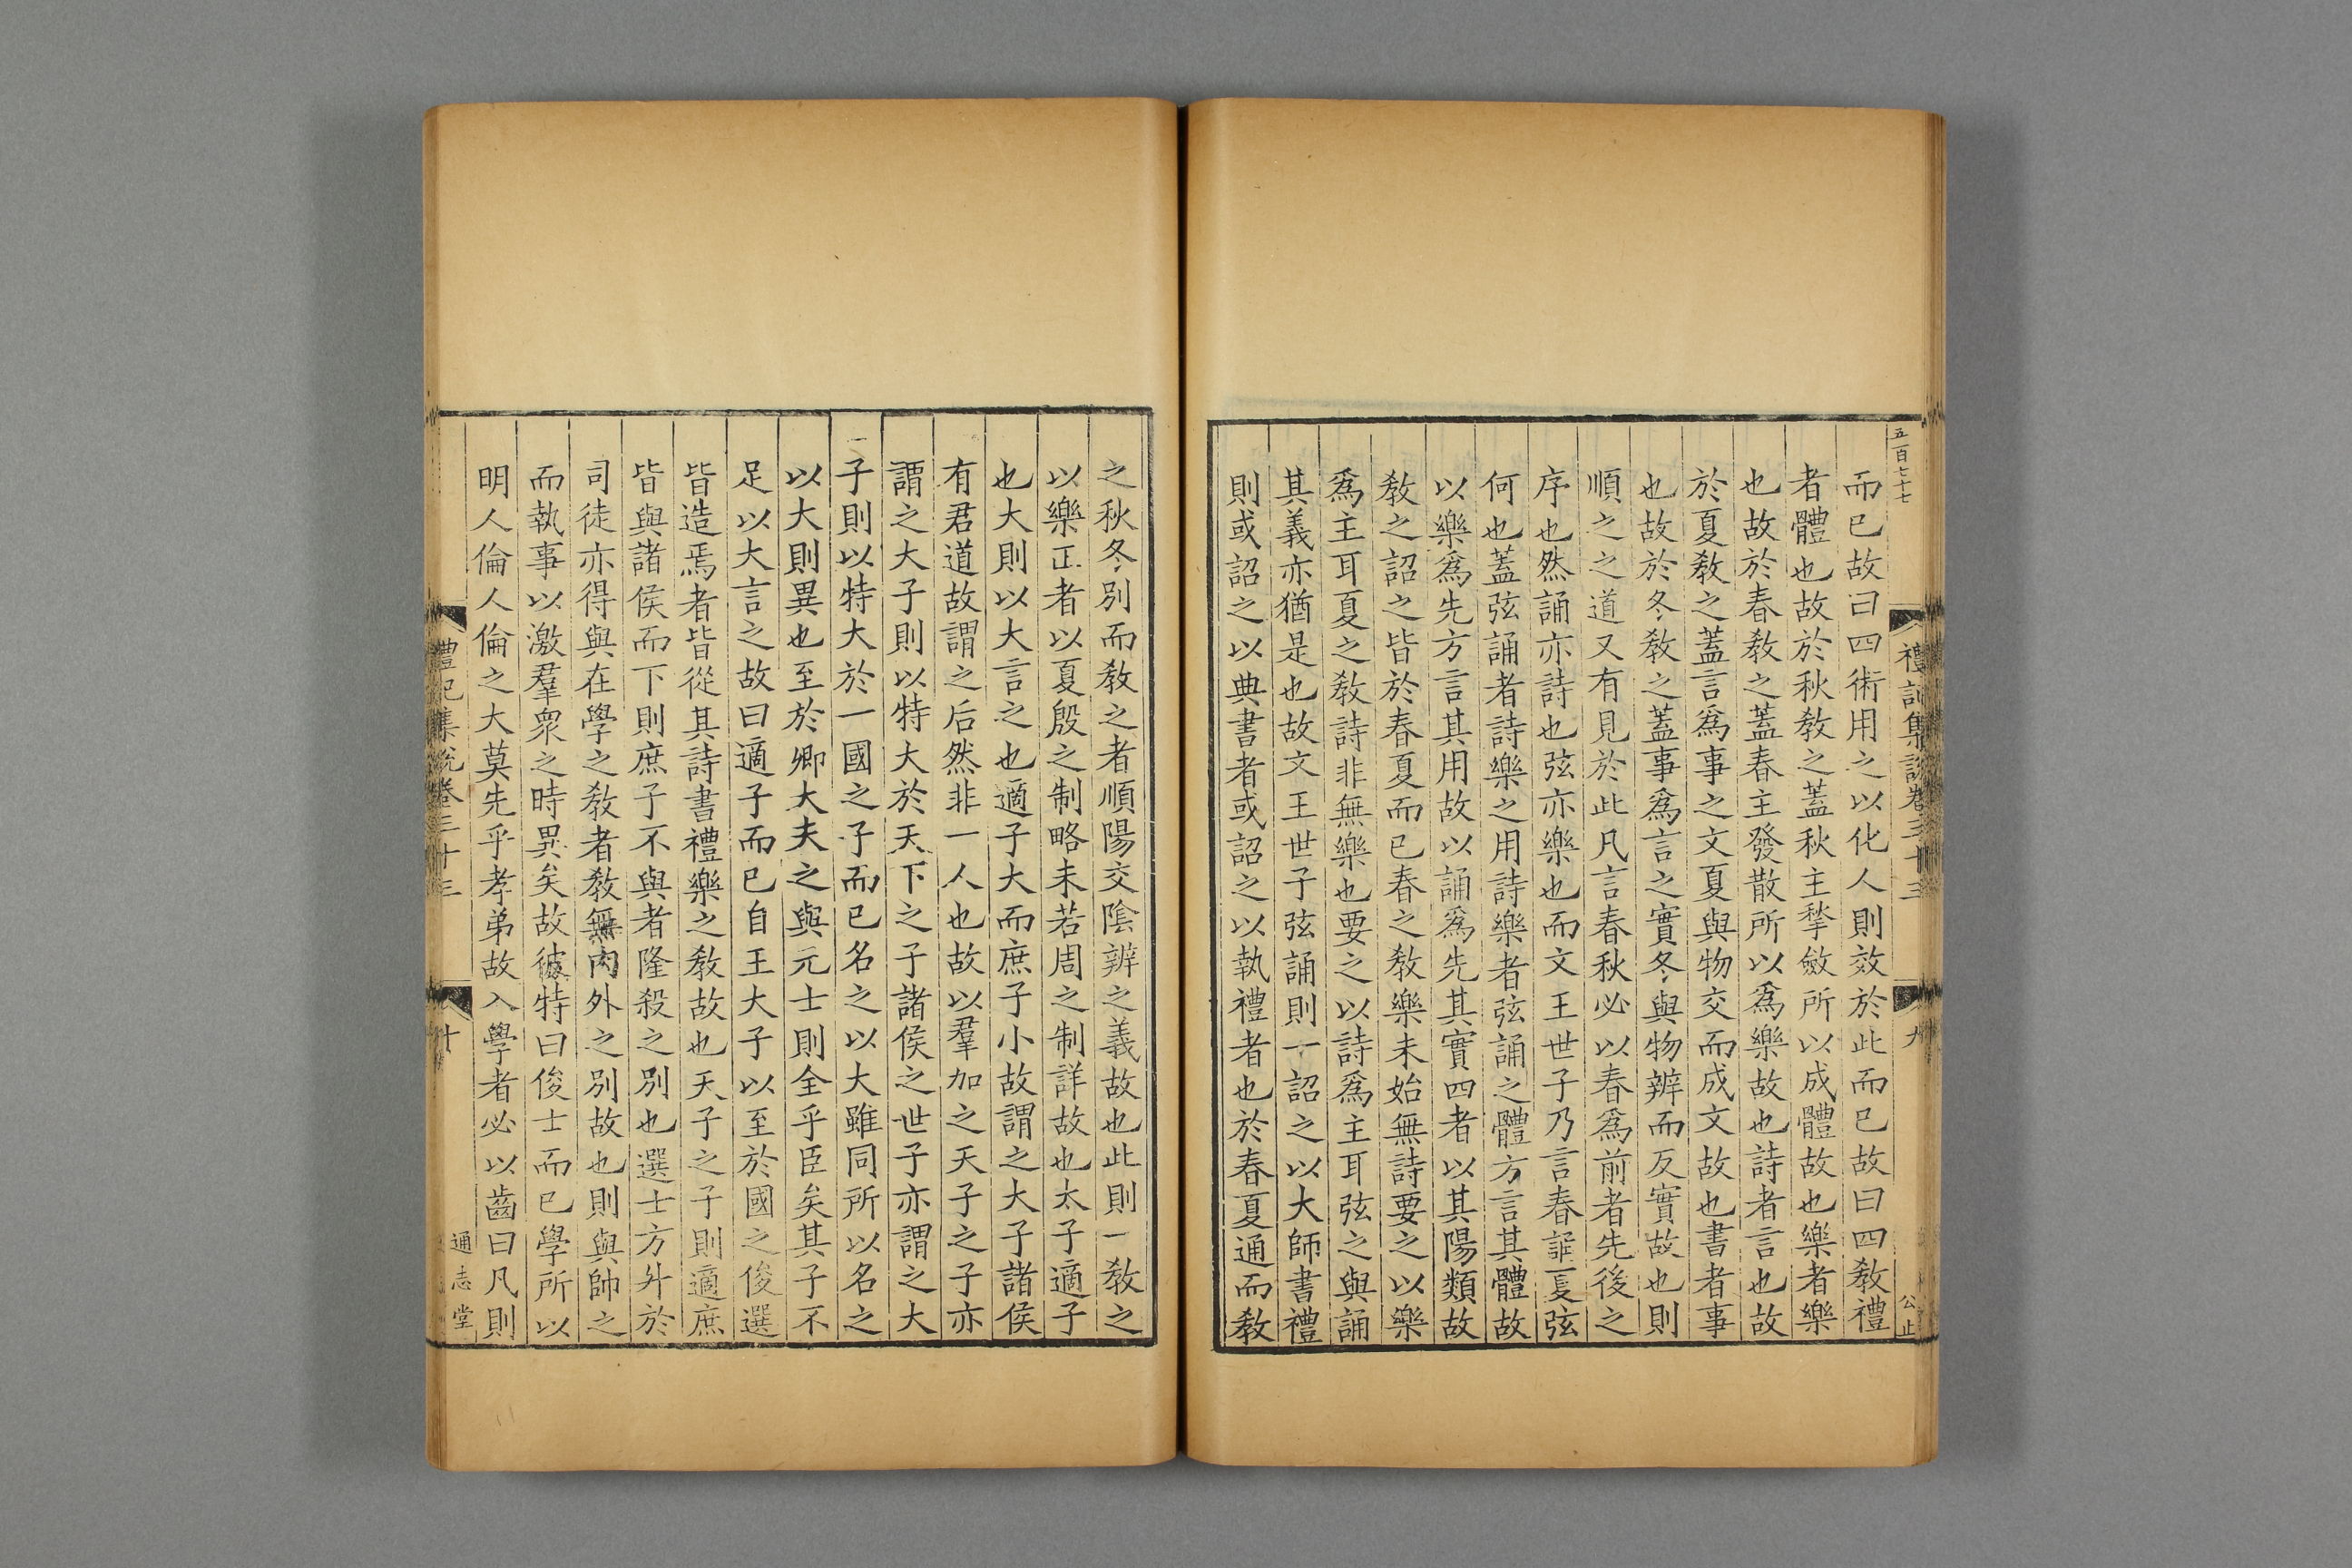 五百七十七
禮記集說卷三十三
九
公止
而已故曰四術用之以化人則效於此而已故曰四敎禮
者體也故於秋敎之蓋秋主揫斂所以成體故也樂者樂
也故於春敎之蓋春主發散所以爲樂故也詩者言也故
於夏敎之蓋言爲事之文夏與物交而成文故也書者事
也故於冬敎之蓋事爲言之實冬與物辨而反實故也則
順之之道又有見於此凡言春秋必以春爲前者先後之
序也然誦亦詩也弦亦樂也而文王世子乃言春誦夏弦
何也蓋弦誦者詩樂之用詩樂者弦誦之體方言其體故
以樂爲先方言其用故以誦爲先其實四者以其陽類故
敎之詔之皆於春夏而已春之敎樂未始無詩要之以樂
爲主耳夏之敎詩非無樂也要之以詩爲主耳弦之與誦
其義亦猶是也故文王世子弦誦則一詔之以大師書禮
則或詔之以典書者或詔之以執禮者也於春夏通而敎
之秋冬別而敎之者順陽交陰辨之義故也此則一敎之
以樂正者以夏殷之制略未若周之制詳故也太子適子
也大則以大言之也適子大而庶子小故謂之大子諸侯
有君道故謂之后然非一人也故以羣加之天子之子亦
謂之大子則以特大於天下之子諸侯之世子亦謂之大
子則以特大於一國之子而已名之以大雖同所以名之
以大則異也至於卿大夫之與元士則全乎臣矣其子不
足以大言之故曰適子而已自王大子以至於國之俊選
皆造焉者皆從其詩書禮樂之敎故也天子之子則適庶
皆與諸侯而下則庶子不與者隆殺之別也選士方升於
司徒亦得與在學之敎者敎無內外之別故也則與帥之
而執事以激羣衆之時異矣故彼特曰俊士而已學所以
明人倫人倫之大莫先乎孝弟故入學者必以齒曰凡則
禮記集說卷三十三
十
通志堂